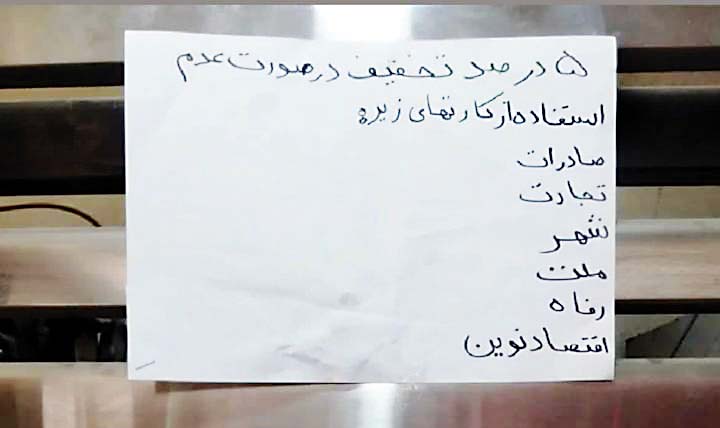 ۵ درصد تخفیف درصورت عدم
استفاده از کارتهای زیر:
صادرات
تجارت
شهر
ملت
رفاه
اقتصاد نوین